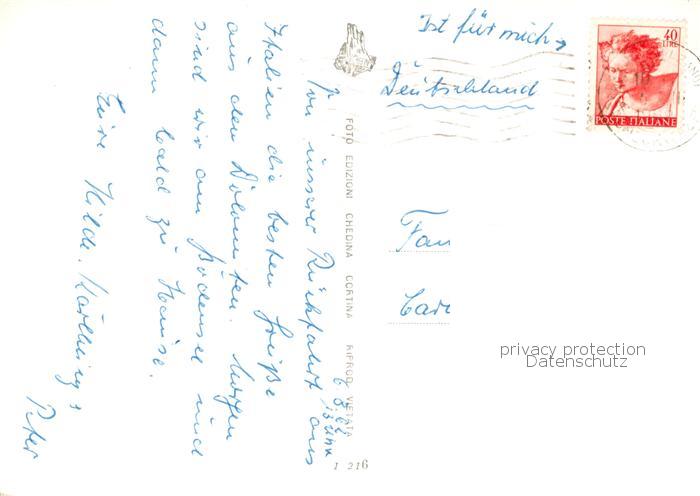 Ist für mich
Deutschland
40
LIRE
POSTE ITALIANE
13 Uhr
Von unserer Rückfahrt aus
Italien die besten Grüße
aus den Dolomiten. Morgen
sind wir am Bodensee und
dann bald zu Hause.
Eure Hilde, Karlheinz,
Peter
FOTO EDIZIONI GHEDINA CORTINA RIPROD. VIETATA
1 216
Fam
Carl
privacy protection
Datenschutz